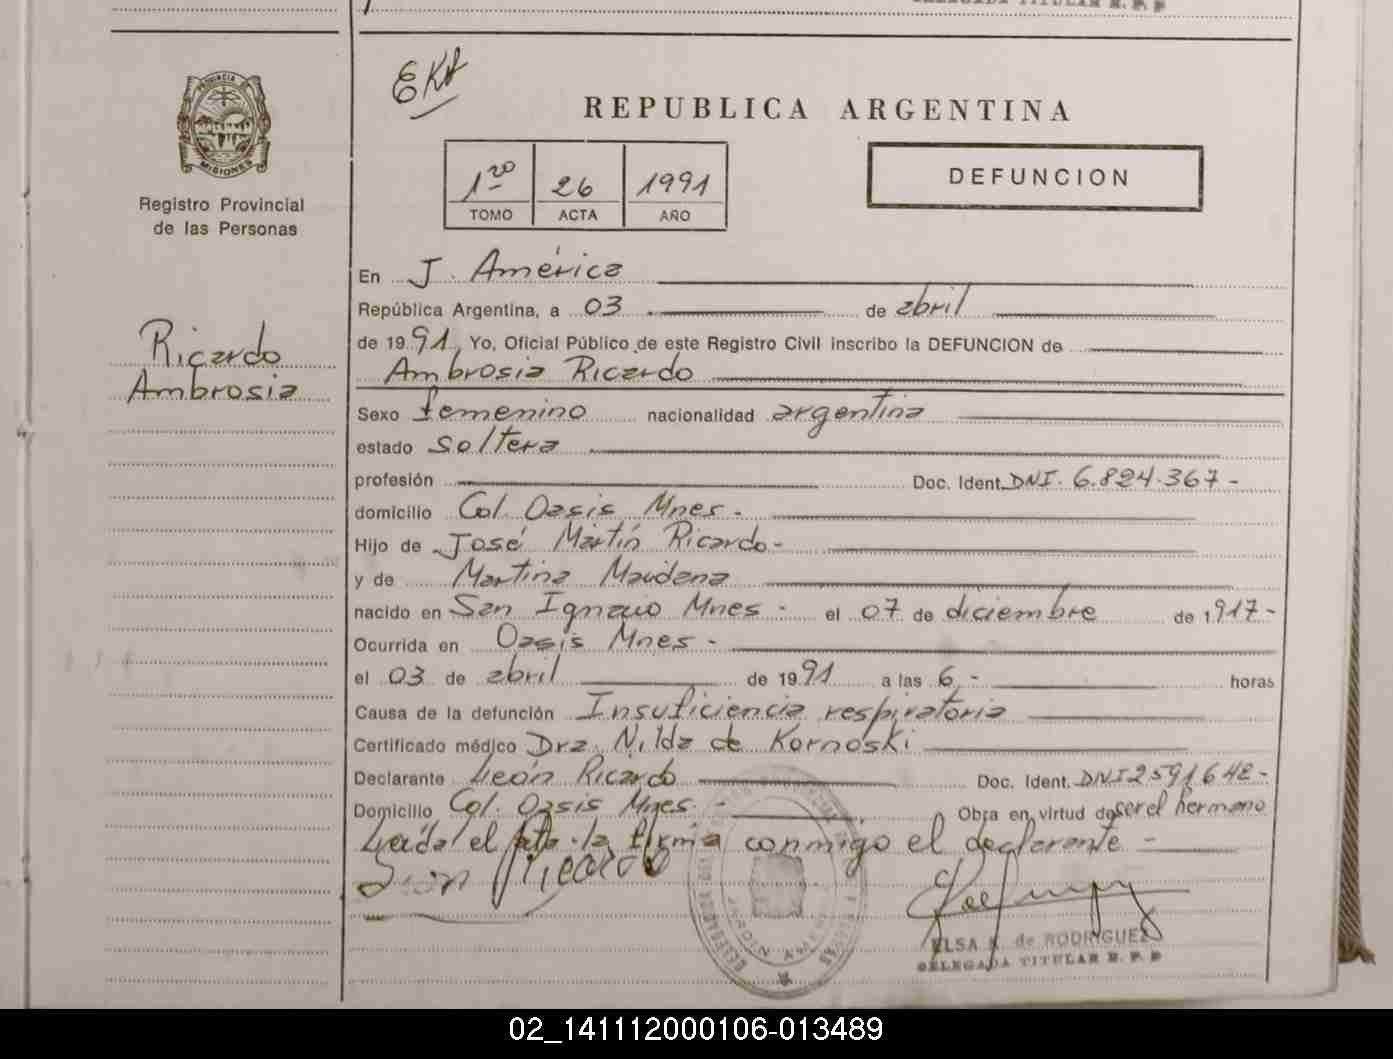 EKA
PROVINCIA
MISIONES
REPUBLICA ARGENTINA
1ro 26 1991
TOMO ACTA AÑO
DEFUNCION
Registro Provincial
de las Personas
Ricardo
Ambrosia
En J. América
República Argentina, a 03 de abril
de 1991, Yo, Oficial Público de este Registro Civil inscribo la DEFUNCION de
Ambrosia Ricardo
Sexo femenino nacionalidad argentina
estado soltera
profesión Doc. Ident. DNI. 6.824.367-
domicilio Col. Oasis Mnes-
Hijo de José Martín Ricardo-
y de Martina Maidana
nacido en San Ignacio Mnes- el 07 de diciembre de 1917-
Ocurrida en Oasis Mnes-
el 03 de abril de 1991 a las 6,- horas
Causa de la defunción Insuficiencia respiratoria
Certificado médico Dra. Nilda de Kornoski
Declarante León Ricardo Doc. Ident. DNI 2591642-
Domicilio Col. Oasis Mnes- Obra en virtud de ser el hermano
Leída el acta la firma conmigo el declarante-
León Ricardo
ELSA de RODRIGUEZ
DELEGADA TITULAR R. P. P
02_141112000106-013489